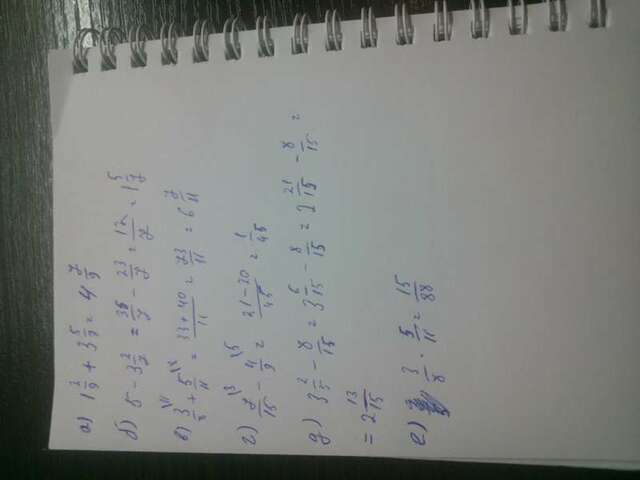 а) 1 2/9 + 3 5/9 = 4 7/9
б) 5 - 3 2/7 = 35/7 - 23/7 = 12/7 = 1 5/7
в) 3/8 \11 + 5/11 \8 = 33+40/11 = 73/11 = 6 7/11
г) 7/15 \3 - 4/9 \5 = 21-20/45 = 1/45
д) 3 2/5 - 8/15 = 3 6/15 - 8/15 = 2 21/15 - 8/15 =
= 2 13/15
е) 3/8 · 5/11 = 15/88